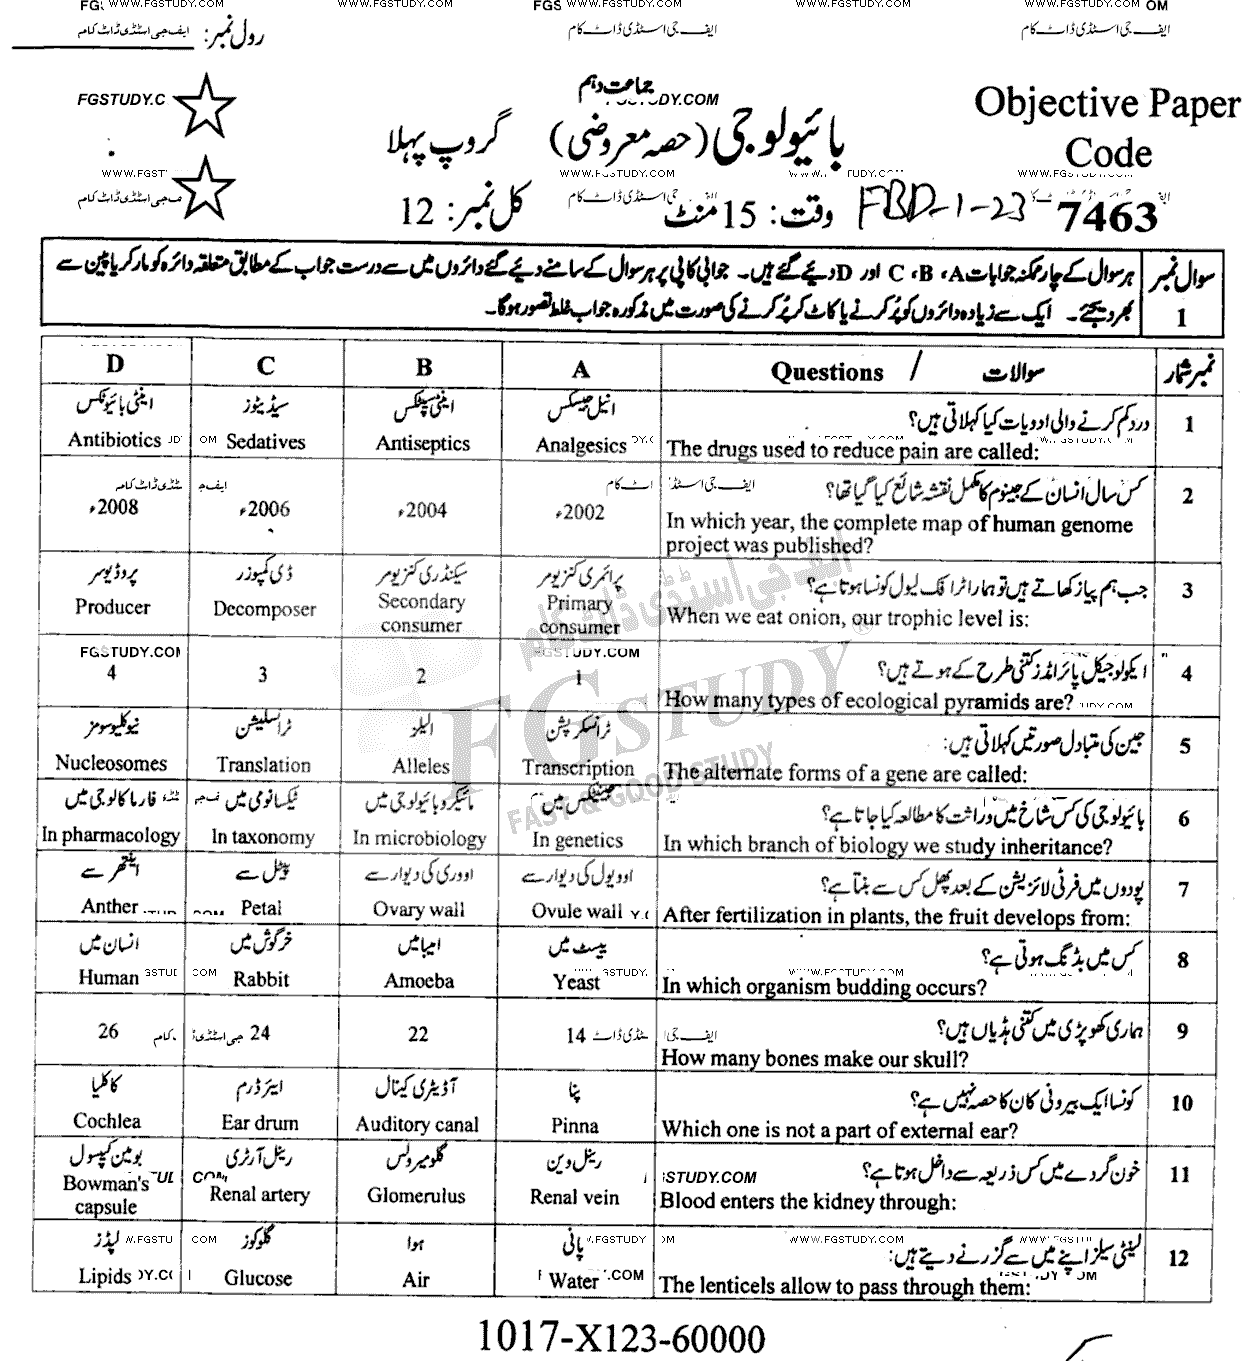 WWW.FGSTUDY.COM WWW.FGSTUDY.COM
ایف جی اسٹڈی ڈاٹ کام ایف جی اسٹڈی ڈاٹ کام ایف جی اسٹڈی ڈاٹ کام رول نمبر:
جماعت دہم
FGSTUDY.C DY.COM
Objective Paper
Code
7463
بائیولوجی (حصہ معروضی) گروپ پہلا
وقت: 15 منٹ کل نمبر: 12
FBD-1-23
سوال نمبر 1
ہر سوال کے چار ممکنہ جوابات A، B، C اور D دیئے گئے ہیں۔ جوابی کاپی پر ہر سوال کے سامنے دیئے گئے دائروں میں سے درست جواب کے مطابق متعلقہ دائرہ کو مارکر یا پین سے
بھر دیجئے۔ ایک سے زیادہ دائروں کو پُر کرنے یا کاٹ کر پُر کرنے کی صورت میں مذکورہ جواب غلط تصور ہوگا۔
D C B A Questions / سوالات نمبر شمار
اینٹی بائیوٹکس سیڈیٹوز اینٹی سپٹکس انیل جیسکس درد کم کرنے والی ادویات کیا کہلاتی ہیں؟ 1
Antibiotics Sedatives Antiseptics Analgesics The drugs used to reduce pain are called:
کس سال انسان کے جینوم کا مکمل نقشہ شائع کیا گیا تھا؟ 2
2008ء 2006ء 2004ء 2002ء In which year, the complete map of human genome
project was published?
پروڈیوسر ڈی کمپوزر سیکنڈری کنزیومر پرائمری کنزیومر جب ہم پیاز کھاتے ہیں تو ہمارا ٹرافک لیول کونسا ہوتا ہے؟ 3
Producer Decomposer Secondary consumer Primary consumer When we eat onion, our trophic level is:
FGSTUDY.COM
ایکولوجیکل پائرامڈز کتنی طرح کے ہوتے ہیں؟ 4
4 3 2 1 How many types of ecological pyramids are?
نیوکلیوسومز ٹرانسلیشن الیلز ٹرانسکرپشن جین کی متبادل صورتیں کہلاتی ہیں: 5
Nucleosomes Translation Alleles Transcription The alternate forms of a gene are called:
FGSTUDY
FAST & GOOD STUDY
فارماکالوجی میں ٹیکسانومی میں مائیکروبائیولوجی میں جینیٹکس میں بائیولوجی کی کس شاخ میں وراثت کا مطالعہ کیا جاتا ہے؟ 6
In pharmacology In taxonomy In microbiology In genetics In which branch of biology we study inheritance?
اینتھر سے پیٹل سے اووری کی دیوار سے اوویول کی دیوار سے پودوں میں فرٹیلائزیشن کے بعد پھل کس سے بنتا ہے؟ 7
Anther Petal Ovary wall Ovule wall After fertilization in plants, the fruit develops from:
انسان میں خرگوش میں امیبا میں ییسٹ میں کس میں بڈنگ ہوتی ہے؟ 8
Human Rabbit Amoeba Yeast In which organism budding occurs?
ہماری کھوپڑی میں کتنی ہڈیاں ہیں؟ 9
26 24 22 14 How many bones make our skull?
کاکلیا ایئر ڈرم آڈیٹری کینال پنا کونسا ایک بیرونی کان کا حصہ نہیں ہے؟ 10
Cochlea Ear drum Auditory canal Pinna Which one is not a part of external ear?
بومین کیپسول رینل آرٹری گلومیرولس رینل وین خون گردے میں کس ذریعہ سے داخل ہوتا ہے؟ 11
Bowman's capsule Renal artery Glomerulus Renal vein Blood enters the kidney through:
لپڈز گلوکوز ہوا پانی لینٹی سیلز اپنے میں سے گزرنے دیتے ہیں: 12
Lipids Glucose Air Water The lenticels allow to pass through them:
1017-X123-60000